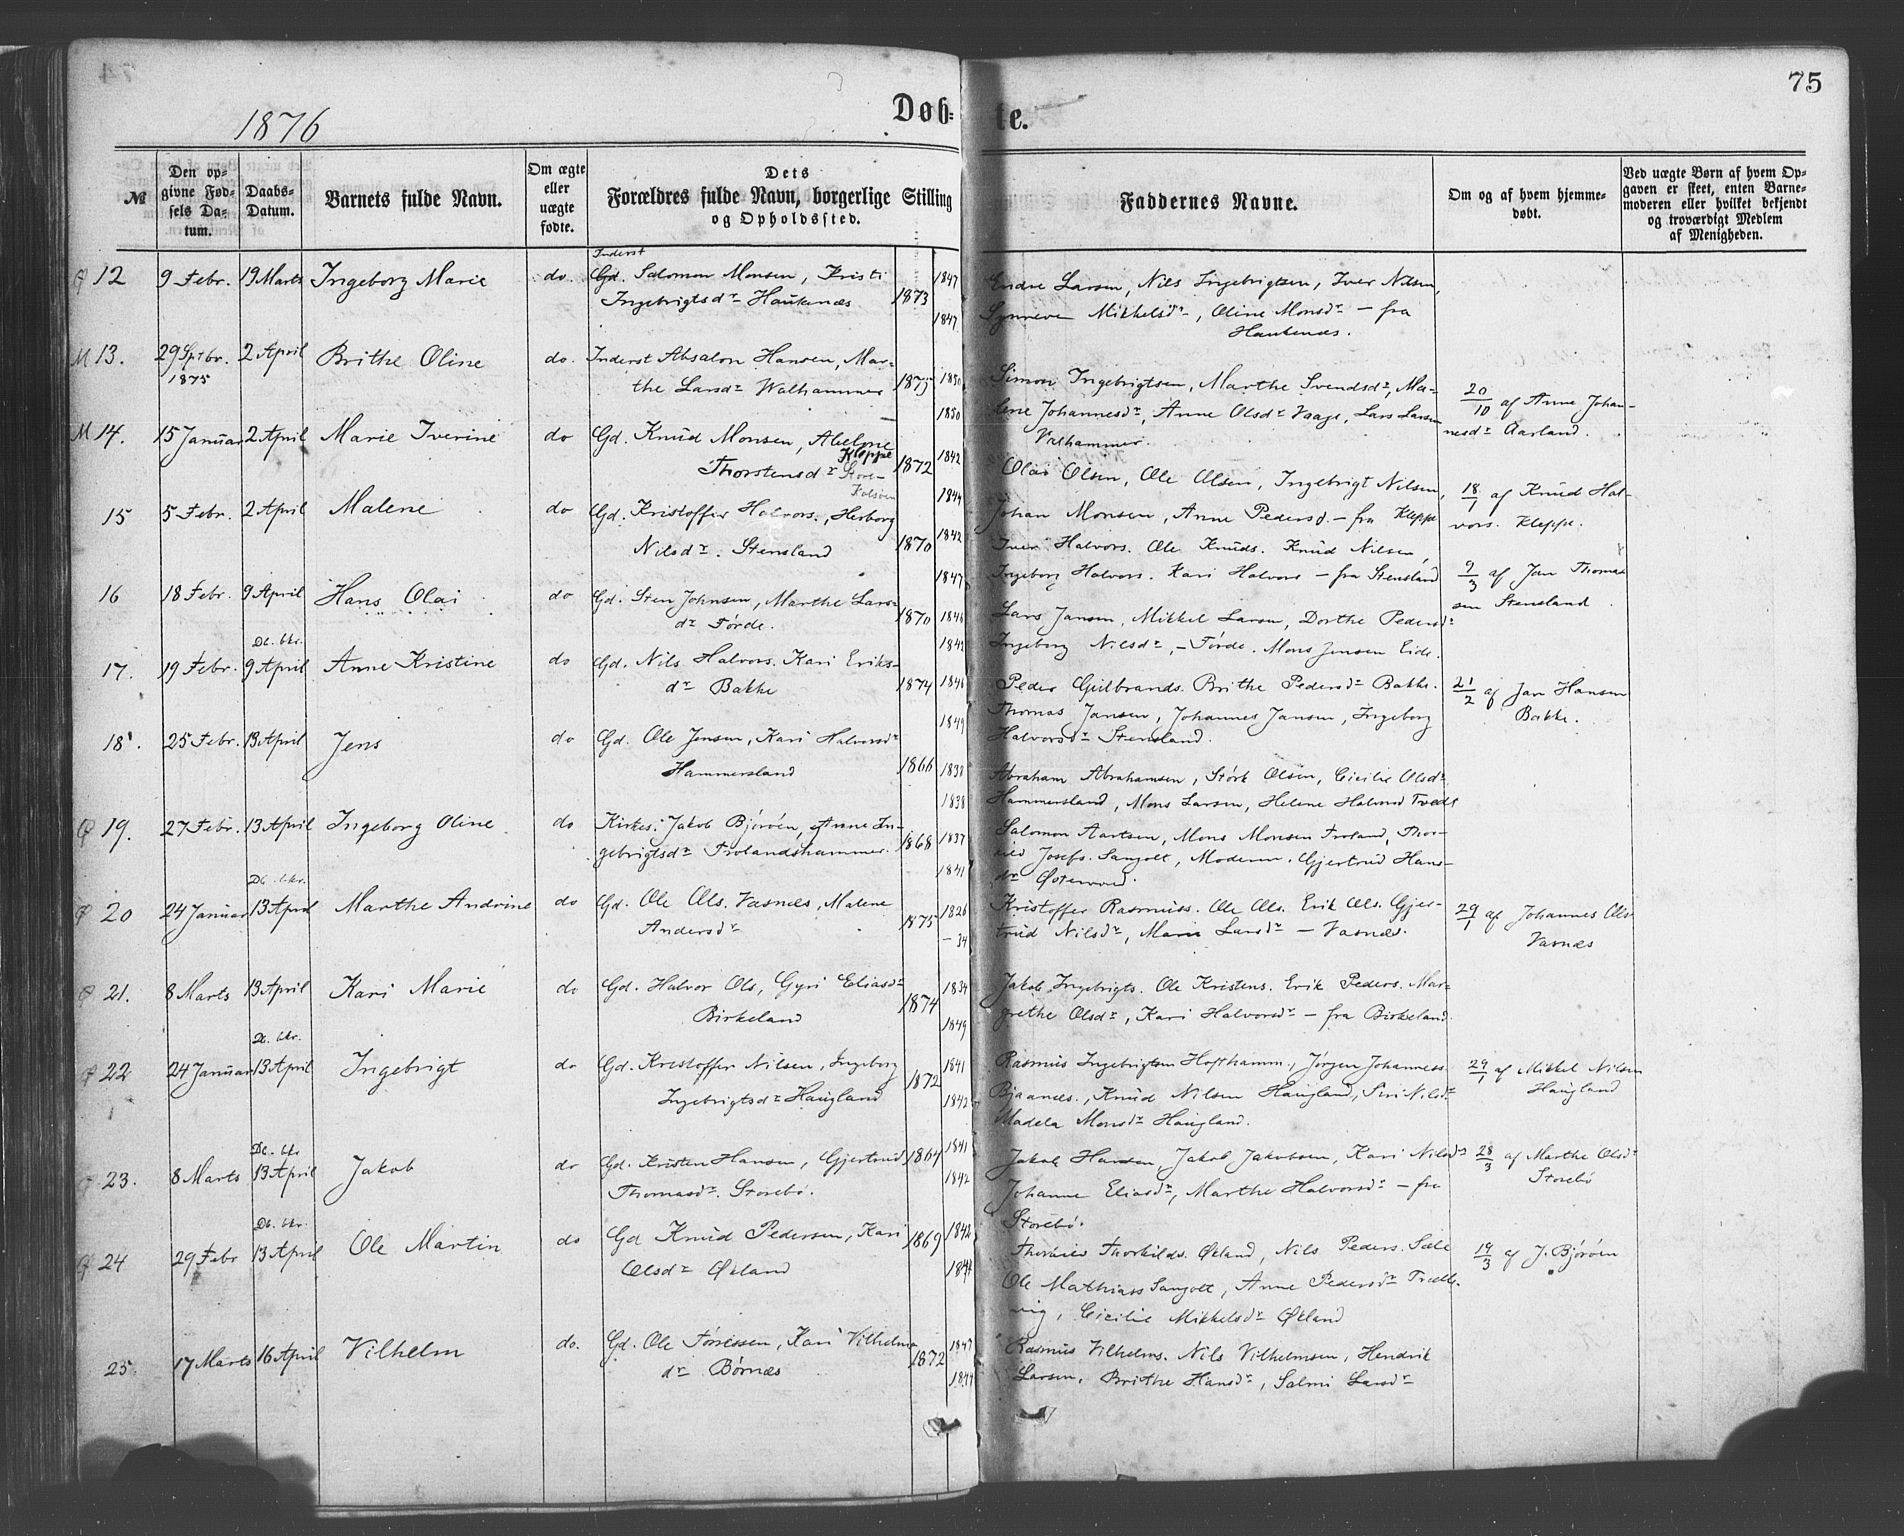 75
1876
Døb-
te.
№
Den op-
givne Fød-
sels Da-
tum.
Daabs-
Datum.
Barnets fulde Navn.
Om ægte
eller
uægte
fødte.
Dets
Forældres fulde Navn, borgerlige Stilling
og Opholdssted.
Faddernes Navne.
Om og af hvem hjemme-
døbt.
Ved uægte Børn af hvem Op-
gaven er skeet, enten Barne-
moderen eller hvilket bekjendt
og troværdigt Medlem
af Menigheden.
12 9 Febr. 19 Marts Ingeborg Marie do. Inderst
Gd. Salomon Monsen, Kristi
Ingebrigtsdr Haukenæs 1873 1847
1847
Endre Larsen, Nils Ingebrigtsen, Iver Nilsen,
Synneve Mikkelsdr, Oline Monsdr - fra
Haukenæs.
M 13. 29 Sptbr. 2 April Brithe Oline do. Inderst Absalon Hansen, Mar-
1875
the Larsdr Walhammer 1875 1850
1850
Simon Ingebrigtsen, Marthe Svendsdr, Ma-
lene Johannesdr, Anne Olsdr Vaage, Lars Larsen
Valhammer.
20/10 af Anne Johan-
nesdr Aarland.
M 14. 15 Januar 2 April Marie Iverine do Gd. Knud Monsen, Abelone
Thorstensdr Kleppe
Store-
Kalsøen 1872 1842
1844
Olai Olsen, Ole Olsen, Ingebrigt Nilsen,
Johan Monsen, Anne Pedersd. - fra Kleppe
18/1 af Knud Hal-
vors. Kleppe.
15 5 Febr. 2 April Malene do Gd. Kristoffer Halvors., Herborg
Nilsdr. Stensland 1870 1842
1847
Iver Halvors. Ole Knuds. Knud Nilsen,
Ingeborg Halvors. Kari Halvors - fra Stensland
9/3 af Jan Thomas
sen Stensland
16 18 Febr. 9 April Hans Olai do Gd. Sten Johnsen, Marthe Lars-
dr Førde. 1870 1846
1842
Lars Jansen, Mikkel Larsen, Dorthe Pedersdr
Ingeborg Nilsdr, - Førde. Mons Jensen Eide.
Db. bkr.
17. 19 Febr. 9 April Anne Kristine do Gd. Nils Halvors. Kari Eriks-
dr Bakke 1874 1846
1849
Peder Gulbrands. Brithe Pedersdr Bakke.
Thomas Jansen, Johannes Jansen, Ingeborg
Halvorsdr Stensland.
21/2 af Jan Hansen
Bakke.
18. 25 Febr. 13 April Jens do Gd. Ole Jensen, Kari Halvorsdr
Hammersland 1866 1838
1838
Abraham Abrahamsen, Størk Olsen, Cicilie Olsdr
Hammersland, Mons Larsen, Helene Halvorsd Tvedt
19. 27 Febr. 13 April Ingeborg Oline do Kirkes. Jakob Bjørøen, Anne In-
gebrigtsdr Trolandshammer. 1868 1837
1841
Salomon Aartsen, Mons Monsen Troland, Thor-
Josefs. Sangolt, Moderen, Gjertrud Hans-
dr Østervold.
Db. bkr.
20 24 Januar 13 April Marthe Andrine do Gd. Ole Ols. Vasnæs, Malene
Andersdr 1875 1826
- 34
Kristoffer Rasmuss. Ole Ols. Erik Ols. Gjer-
trud Nilsdr, Mari Larsdr - Vasnæs.
29/1 af Johannes Ols
Vasnæs
21. 8 Marts 13 April Kari Marie do Gd. Halvor Ols, Gyri Eliasdr
Birkeland 1874 1834
1849
Jakob Ingebrigts. Ole Kristens. Erik Peders. Mar-
grethe Olsdr, Kari Halvorsdr - fra Birkeland
Db. bkr.
22 24 Januar 13 April Ingebrigt do Gd. Kristoffer Nilsen, Ingeborg
Ingebrigtsdr Haugland 1872 1841
1842
Rasmus Ingebrigtsen Hofthamm., Jørgen Johanness.
Bjaanes., Knud Nilsen Haugland, Siri Nilsdr
Madela Monsdr Haugland.
29/1 af Mikkel Nilsen
Haugland
Db. bkr
23. 8 Marts 13 April Jakob do Gd. Kristen Hansen, Gjertrud
Thomasdr. Storebø. 1864 1841
1842
Jakob Hansen, Jakob Jakobsen, Kari Nilsdr
Johanne Eliasdr, Marthe Halvorsdr - fra
Storebø.
28/3 af Marthe Olsdr
Storebø
Db. bkr.
24 29 Febr 13 April Ole Martin do Gd Knud Pedersen, Kari
Olsdr Økland 1869 1842
1844
Thorkilds. Økland, Nils Peders. Sæle
Ole Mathiass Sangolt, Anne Pedersdr Træll-
vig, Cicilie Mikkelsdr Økland
19/3 af J. Bjørøen
25. 17 Marts 16 April Vilhelm do. Gd. Ole Tørrissen, Kari Vilhelms
dr Børnæs 1872 1847
1844
Rasmus Vilhelms. Nils Vilhelmsen, Hendrik
Larsen, Brithe Hansdr, Salmi Larsdr